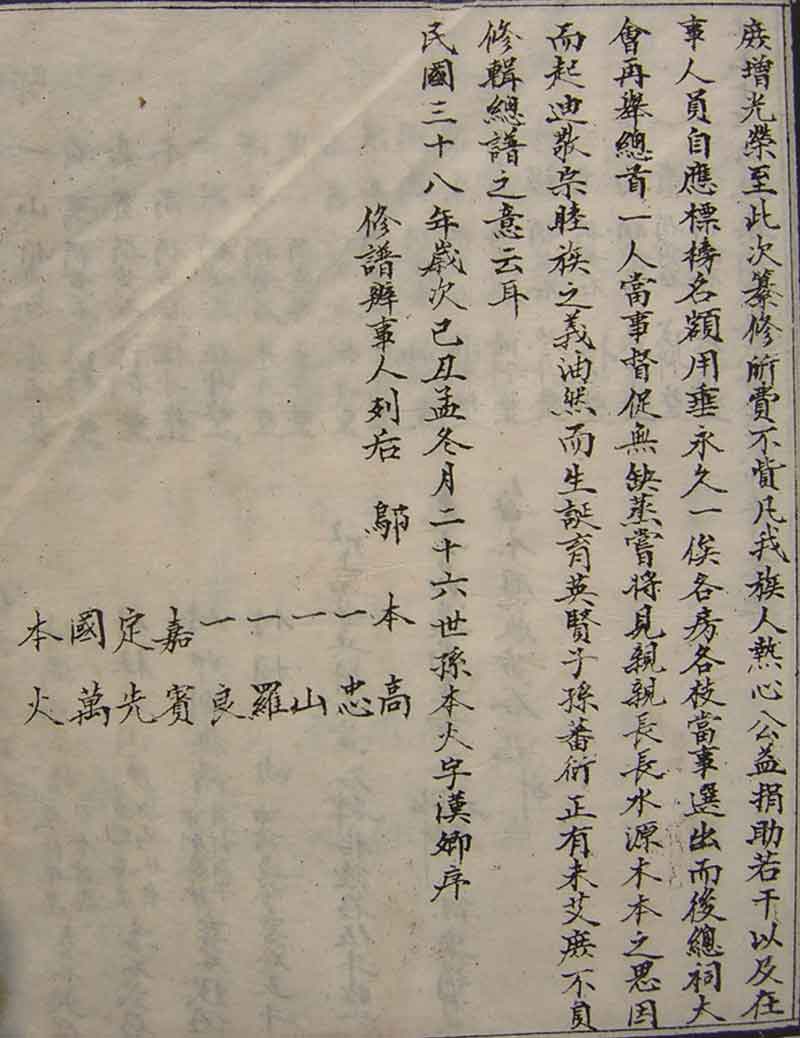 庶增光榮至此次纂修所費不貲凡我族人熱心公益捐助若干以及在
事人員自應標榜名額用垂永久一俟各房各枝當事選出而後總祠大
會再舉總首一人當事督促無缺蒸嘗將見親親長長水源木本之思因
而起迪敬宗睦族之義油然而生誕育英賢子孫蕃衍正有未艾庶不負
修輯總譜之意云耳
民國三十八年歲次己丑孟冬月二十六世孫本火字漢卿序
修譜辦事人列后 鄔
本高
一忠
一山
一羅
一良
嘉賓
定先
國萬
本火